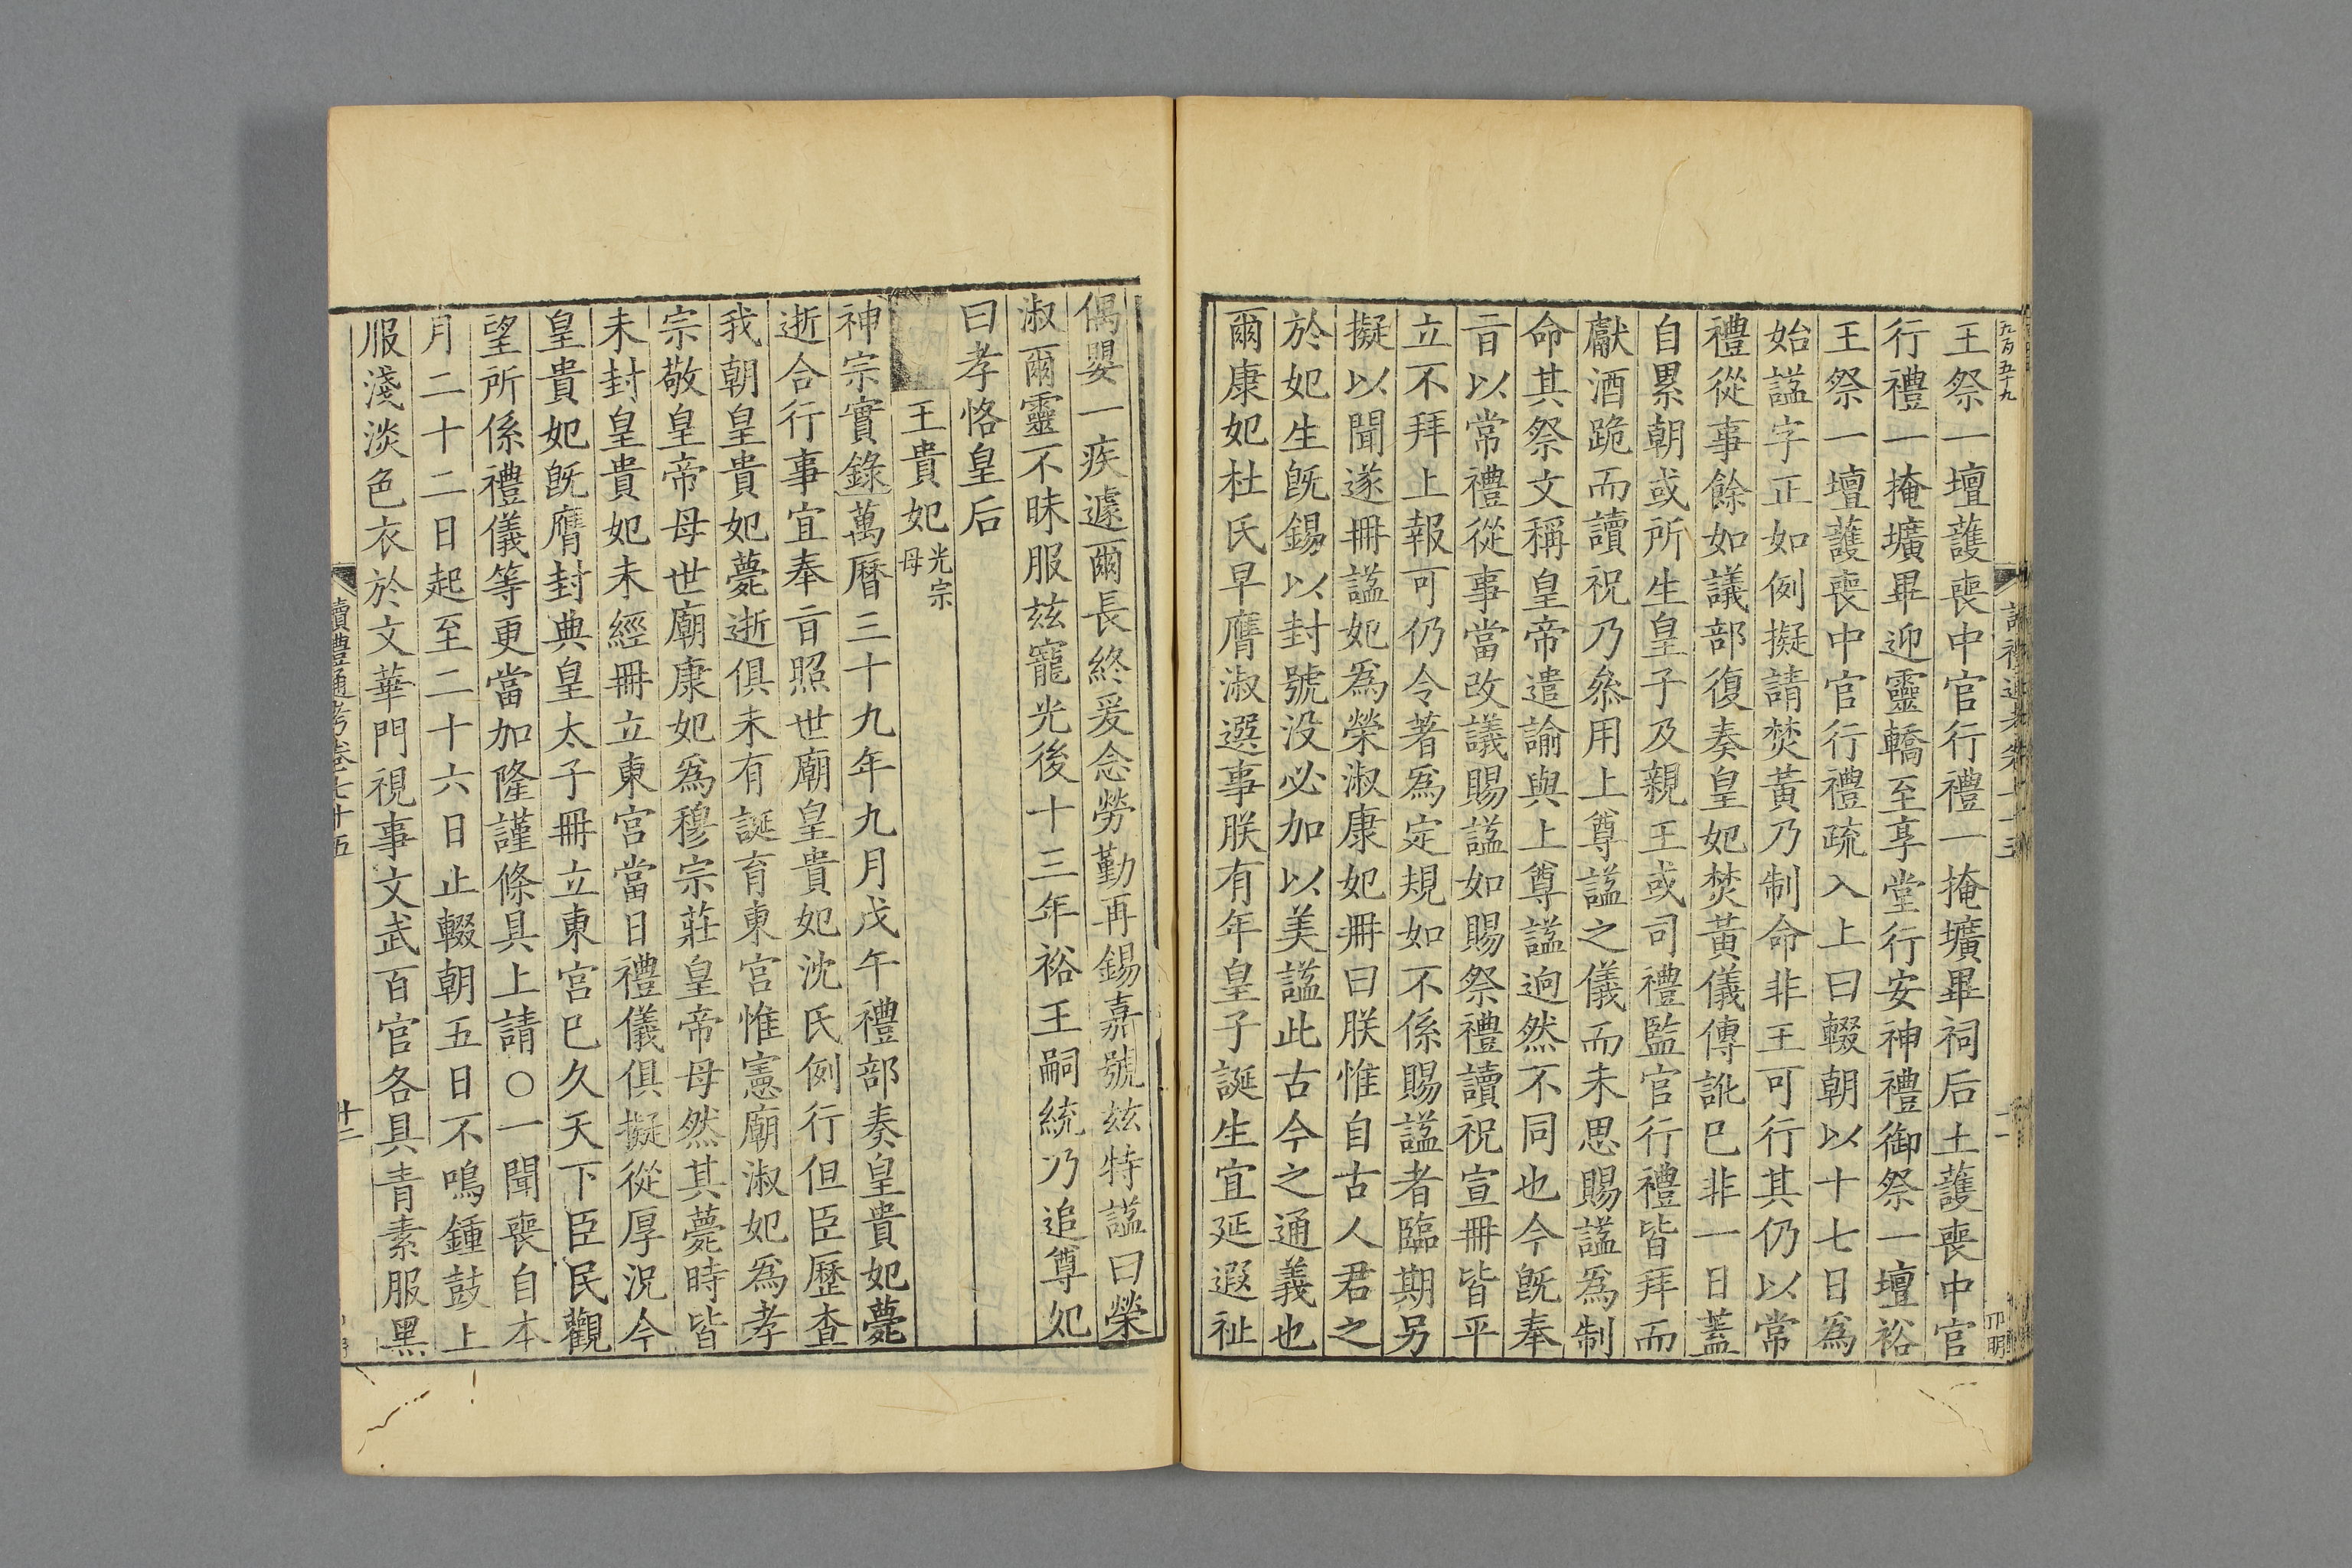 九百五十九
王祭一壇護喪中官行禮一掩壙畢祠后土護喪中官
行禮一掩壙畢迎靈轎至享堂行安神禮御祭一壇裕
王祭一壇護喪中官行禮疏入上曰輟朝以十七日爲
始諡字正如例擬請焚黃乃制命非王可行其仍以常
禮從事餘如議部復奏皇妃焚黃儀傳訛已非一日蓋
自累朝或所生皇子及親王或司禮監官行禮皆拜而
獻酒跪而讀祝乃叅用上尊諡之儀而未思賜諡爲制
命其祭文稱皇帝遣諭與上尊諡逈然不同也今旣奉
㫖以常禮從事當改議賜諡如賜祭禮讀祝宣冊皆平
立不拜上報可仍令著爲定規如不係賜諡者臨期另
擬以聞遂冊諡妃爲榮淑康妃冊曰朕惟自古人君之
於妃生旣錫以封號没必加以美諡此古今之通義也
爾康妃杜氏早膺淑選事朕有年皇子誕生宜延遐祉
偶嬰一疾遽爾長終爰念勞勤再錫嘉號玆特諡曰榮
淑爾靈不昧服玆寵光後十三年裕王嗣統乃追尊妃
曰孝恪皇后
王貴妃光宗母
神宗實錄萬曆三十九年九月戊午禮部奏皇貴妃薨
逝合行事宜奉㫖照世廟皇貴妃沈氏例行但臣歷查
我朝皇貴妃薨逝俱未有誕育東宮惟憲廟淑妃爲孝
宗敬皇帝母世廟康妃爲穆宗莊皇帝母然其薨時皆
未封皇貴妃未經冊立東宮當日禮儀俱擬從厚況今
皇貴妃旣膺封典皇太子冊立東宮已久天下臣民觀
望所係禮儀等更當加隆謹條具上請○一聞喪自本
月二十二日起至二十六日止輟朝五日不鳴鍾鼓上
服淺淡色衣於文華門視事文武百官各具青素服黑
讀禮通考卷七十五
十二